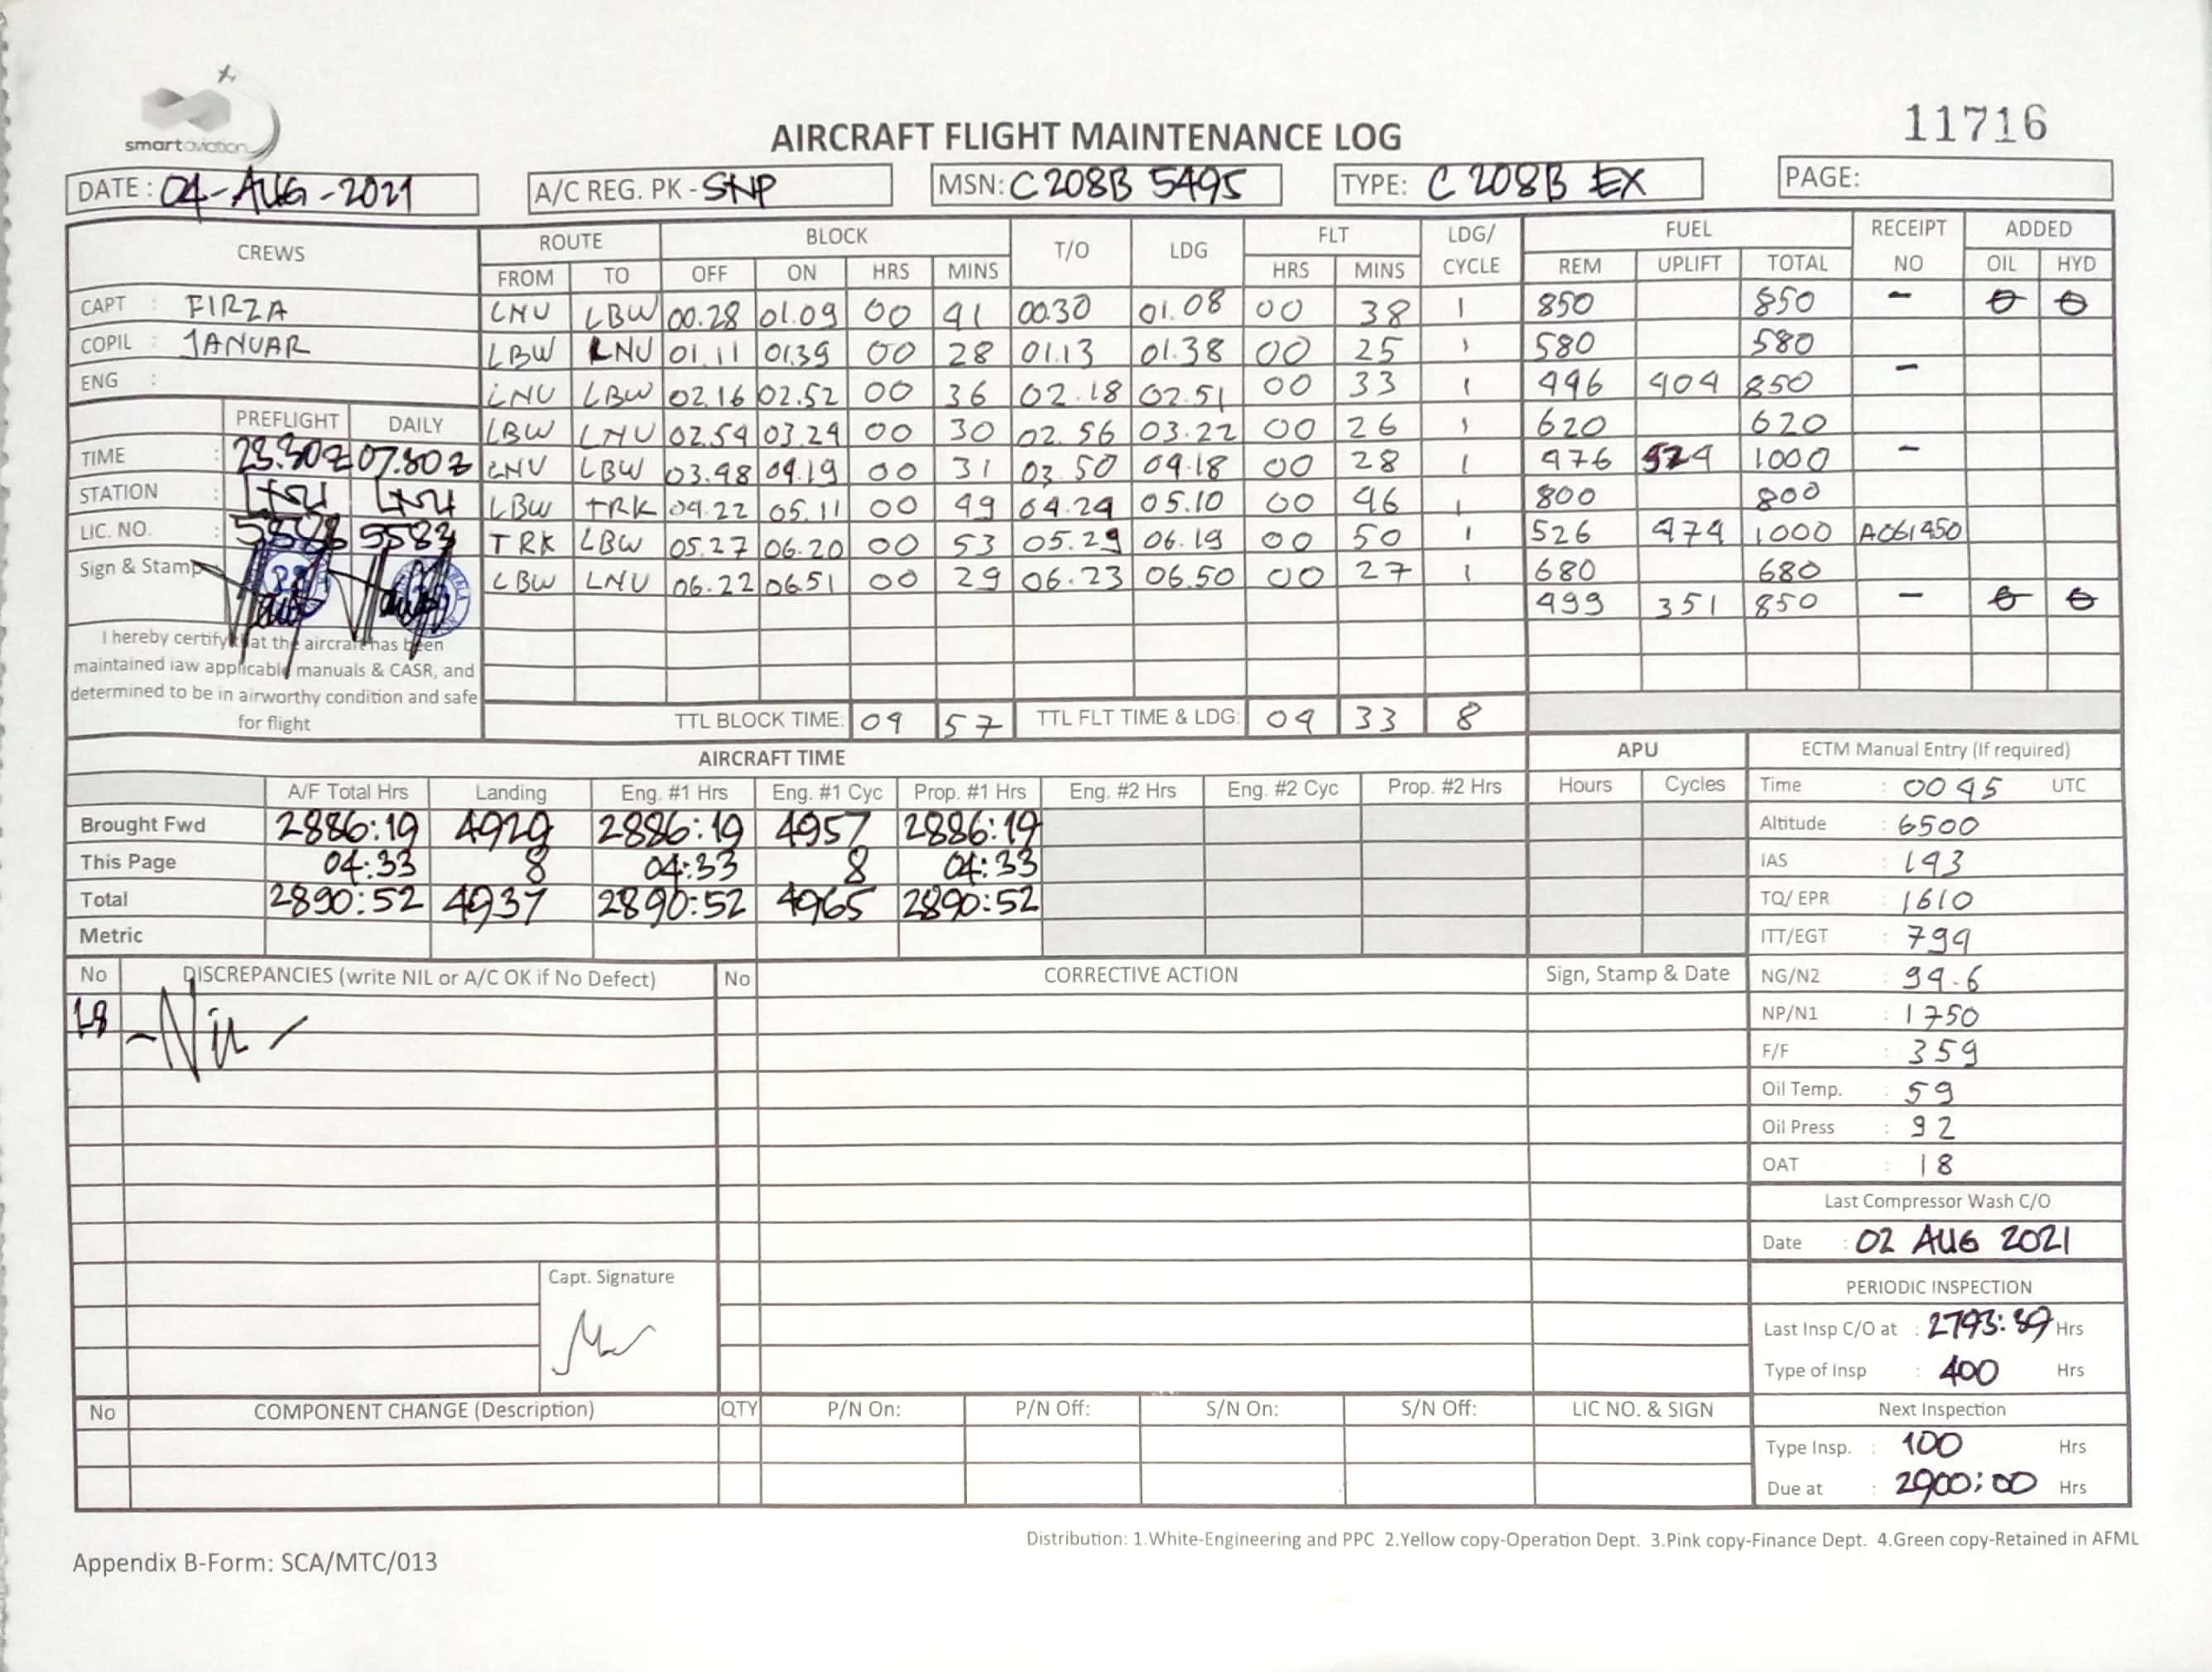 smartaviation
11716
AIRCRAFT FLIGHT MAINTENANCE LOG
DATE: 04-AUG-2021 A/C REG. PK-SNP MSN: C208B 5495 TYPE: C 208B EX PAGE:
CREWS ROUTE BLOCK T/O LDG FLT LDG/ FUEL RECEIPT ADDED
FROM TO OFF ON HRS MINS HRS MINS CYCLE REM UPLIFT TOTAL NO OIL HYD
CAPT : FIRZA LNU LBW 00.28 01.09 00 41 00.30 01.08 00 38 1 850 850 - 0 0
COPIL : JANUAR LBW LNU 01.11 01.39 00 28 01.13 01.38 00 25 1 580 580
ENG : LNU LBW 02.16 02.52 00 36 02.18 02.51 00 33 1 446 404 850 -
PREFLIGHT DAILY LBW LNU 02.54 03.24 00 30 02.56 03.22 00 26 1 620 620
TIME : 23.30Z 07.30Z LNU LBW 03.48 04.19 00 31 03.50 04.18 00 28 1 476 524 1000 -
STATION : LNU LNU LBW TRK 04.22 05.11 00 49 04.24 05.10 00 46 1 800 800
LIC. NO. : 5583 TRK LBW 05.27 06.20 00 53 05.29 06.19 00 50 1 526 474 1000 A061450
Sign & Stamp LBW LNU 06.22 06.51 00 29 06.23 06.50 00 27 1 680 680
499 351 850 - 0 0
I hereby certify that the aircraft has been
maintained iaw applicable manuals & CASR, and
determined to be in airworthy condition and safe
for flight
TTL BLOCK TIME: 04 57 TTL FLT TIME & LDG: 04 33 8
AIRCRAFT TIME APU ECTM Manual Entry (If required)
A/F Total Hrs Landing Eng. #1 Hrs Eng. #1 Cyc Prop. #1 Hrs Eng. #2 Hrs Eng. #2 Cyc Prop. #2 Hrs Hours Cycles Time : 0045 UTC
Brought Fwd 2886:19 4929 2886:19 4957 2886:19 Altitude : 6500
This Page 04:33 8 04:33 8 04:33 IAS : 143
Total 2890:52 4937 2890:52 4965 2890:52 TQ/ EPR : 1610
Metric ITT/EGT : 744
No DISCREPANCIES (write NIL or A/C OK if No Defect) No CORRECTIVE ACTION Sign, Stamp & Date NG/N2 : 94.6
18 -Nil- NP/N1 : 1750
F/F : 359
Oil Temp. : 59
Oil Press : 92
OAT : 18
Last Compressor Wash C/O
Date : 02 AUG 2021
Capt. Signature
PERIODIC INSPECTION
Last Insp C/O at : 2793:39 Hrs
Type of Insp : 400 Hrs
No COMPONENT CHANGE (Description) QTY P/N On: P/N Off: S/N On: S/N Off: LIC NO. & SIGN Next Inspection
Type Insp. : 100 Hrs
Due at : 2900:00 Hrs
Distribution: 1.White-Engineering and PPC 2.Yellow copy-Operation Dept. 3.Pink copy-Finance Dept. 4.Green copy-Retained in AFML
Appendix B-Form: SCA/MTC/013